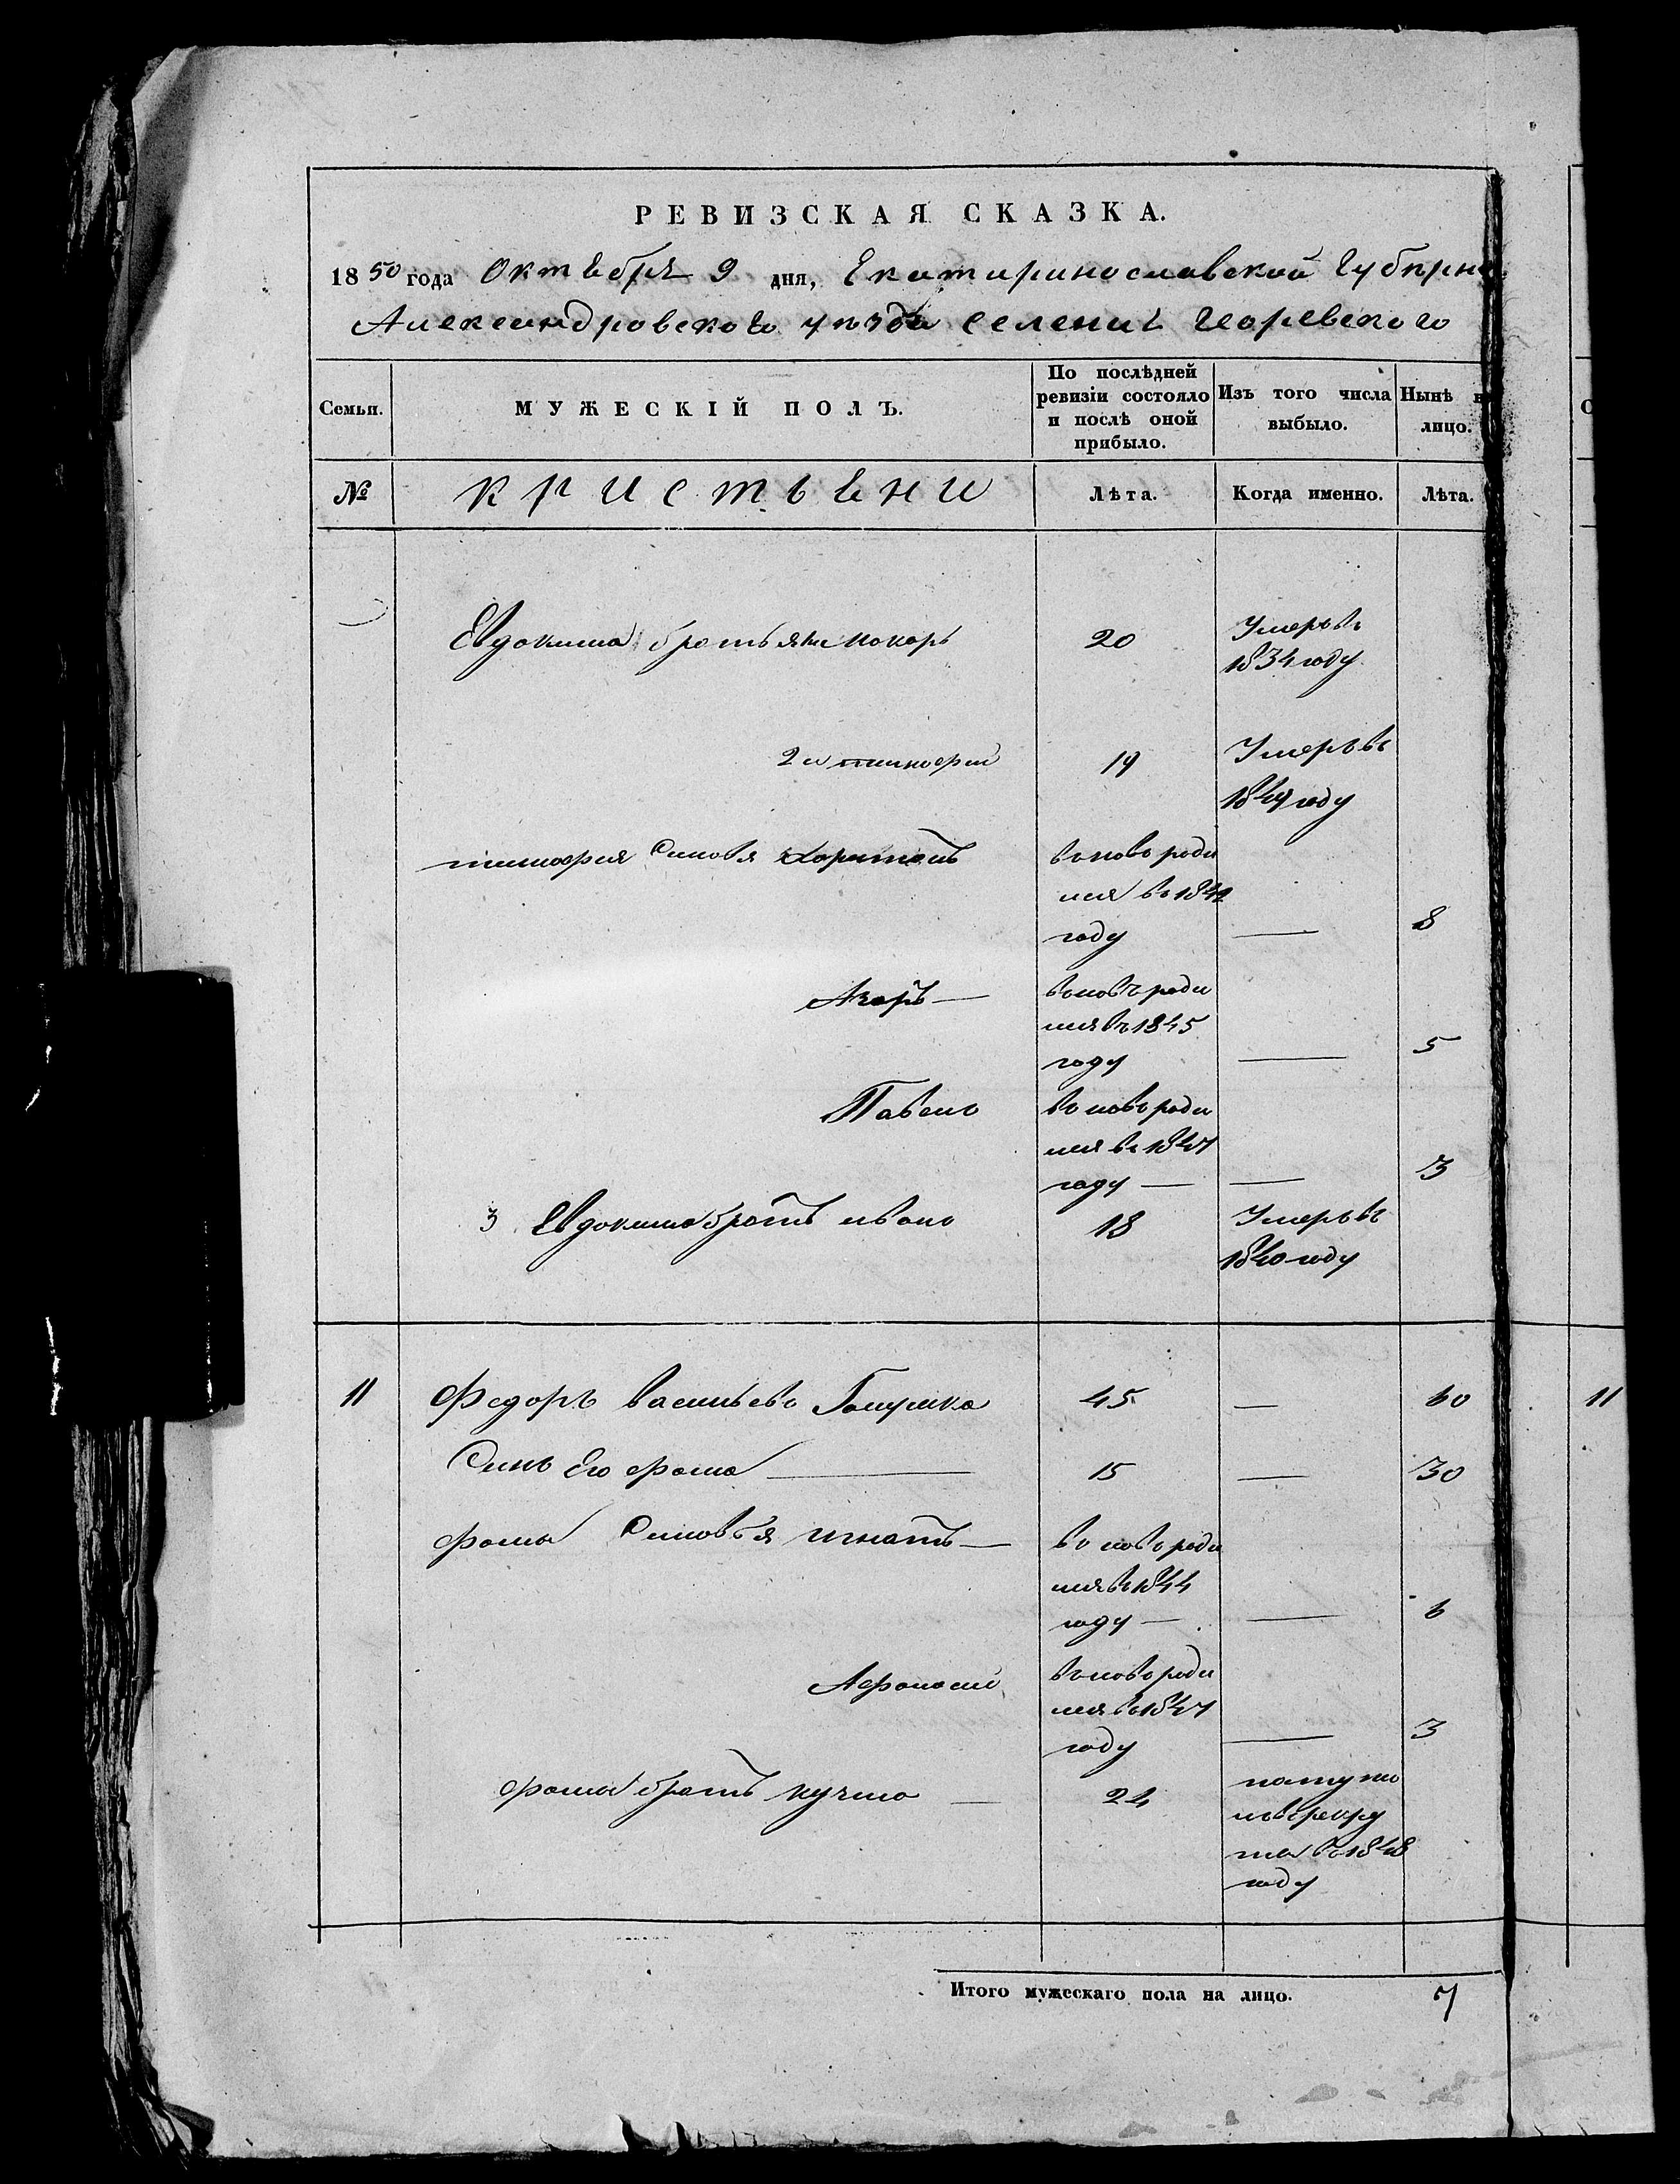 РЕВИЗСКАЯ СКАЗКА.
1850 года Октебря 9 дня, Екатиринославской Губѣрни
Александровского уѣзда селения Георевского
Семьи.
МУЖЕСКІЙ ПОЛЪ.
По послѣдней ревизіи состояло и послѣ оной прибыло.
Изъ того числа выбыло.
Нынѣ на лицо.
№
кристьени
Лѣта.
Когда именно.
Лѣта.
Евдокима братья 1й Макаръ 20 Умеръ въ
1834 году
2й тимофей 19 Умеръ въ
1849 году
тимофея Синовя Харитонъ вновъ роди
лся въ 1842
году — 8
Азаръ — вновъ роди
лся въ 1845
году — 5
Павелъ вновъ роди
лся въ 1847
году — — 3
3 Евдокима братъ иванъ 18 Умеръ въ
1840 году
11 Федоръ васильевъ Галушка 45 — 60 11
Синъ Его фома — 15 — 30
фомы Синовья игнатъ — вновъ роди
лся въ 1844
году — — 6
Афонасий вновъ роди
лся въ 1847
году — 3
фомы братъ кузма — 24 поступи
лъ в рекру
ты въ 1848
году
Итого мужескаго пола на лицо. 7